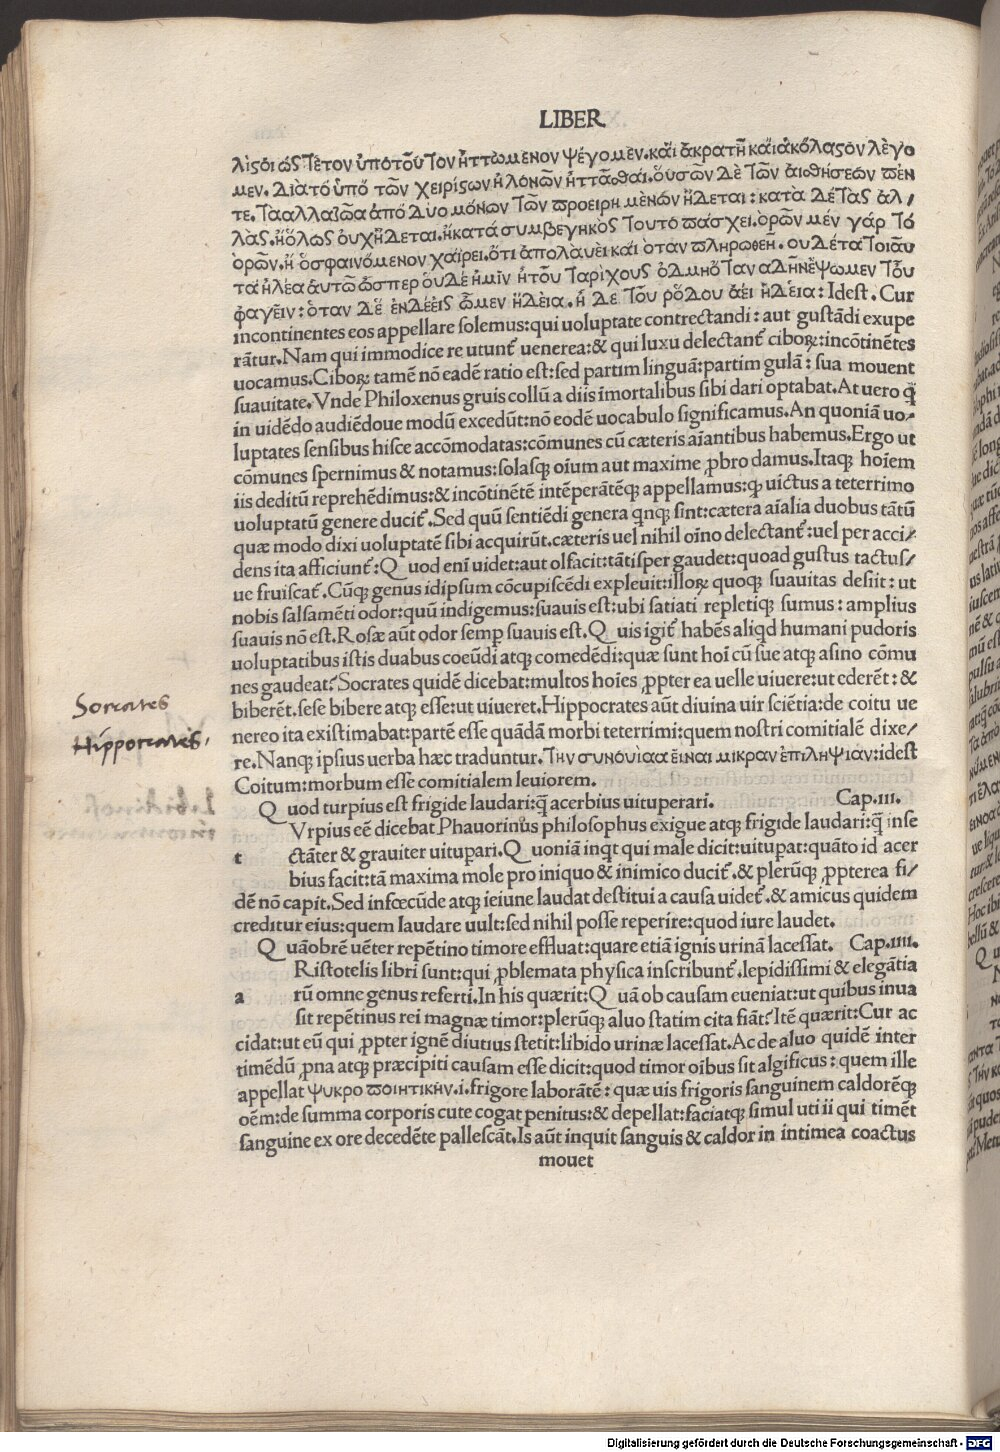 LIBER
λιϛόι ὡς Τὲτον ὑπότοῦ Τον ἡττώμενον ψέγομεν. κάι ἀκρατῆ κάι ἀκόλαϛον λὲγο
μεν. Διὰτό ὑπό τῶν χειρίϛων ἡλονῶν ἡττᾶσθαι. ὀυσῶν Δὲ Τῶν ἀισθήσεών πὲν
τε. Τὰαλλαζῶα ἀπό Δύο μόνων Τῶν προειρημὲνών ἥΔεται: κατὰ ΔὲΤὰς ἀλ/
λὰς. ἤὅλως ὀυχἥΔεται. ἤκατά συμβεγηκὸς Τουτό πάσχει. ὁρῶν μέν γάρ Τό
ὁρῶν. ἤ ὁσφαινόμενον χαίρει. ὅτι ἀπολὰυὲι κάι ὁτὰν πληρωθεῆ. ουΔέτα Τοιᾶυ
τα ἡλέα ἀυτῶ ὥσπερ ὀυΔὲ ἡμῖν ἡτοῦ Ταρίχους ὀΔμηὅΤαν αΔηνἔψωμεν Τοῦ
φαγεῖν: ὁταν Δὲ ἐνΔέεῖς ὦμεν ἥΔεια. ἡ Δε Τοῦ ῥόΔου ἀέι ἡΔεῖα: Idest. Cur
incontinentes eos appellare ſolemus:qui uoluptate contrectandi: aut guſtādi exupe
rātur. Nam qui immodice re utunt᷑ uenerea:& qui luxu delectant᷑ ciboꝝ:incōtinētes
uocamus. Ciboꝝ tamē nō eadē ratio eſt:ſed partim linguā:partim gulā: ſua mouent
ſuauitate. Vnde Philoxenus gruis collū a diis īmortalibus ſibi dari optabat. At uero q̄
in uidēdo audiēdoue modū excedūt:nō eodē uocabulo ſignificamus. An quoniā uo/
luptates ſenſibus hiſce accōmodatas:cōmunes cū cæteris aīantibus habemus. Ergo ut
cōmunes ſpernimus & notamus:ſolaſqꝫ oīum aut maxime ꝓbro damus. Itaqꝫ hoīem
iis deditū reprehēdimus:& incōtinētē intēperātēqꝫ appellamus:ꝙ uictus a teterrimo
uoluptatū genere ducit᷑. Sed quū ſentiēdi genera qnqꝫ ſint:cætera aīalia duobus tātū
quæ modo dixi uoluptatē ſibi acquirūt. cæteris uel nihil oīno delectant᷑:uel per acci/
dens ita afficiunt᷑: Quod enī uidet:aut olfacit:tātiſper gaudet:quoad guſtus tactuſ/
ue fruiſcat᷑. Cūqꝫ genus idipſum cōcupiſcēdi expleuit:illoꝝ quoqꝫ ſuauitas deſiit: ut
nobis ſalſamēti odor:quū indigemus:ſuauis eſt:ubi ſatiati repletiqꝫ ſumus: amplius
ſuauis nō eſt. Roſæ aūt odor ſemꝑ ſuauis eſt. Quis igit᷑ habēs aliqd humani pudoris
uoluptatibus iſtis duabus coeūdi atqꝫ comedēdi:quæ ſunt hoī cū ſue atqꝫ aſino cōmu
nes gaudeat? Socrates quidē dicebat:multos hoīes ꝓpter ea uelle uiuere:ut ederēt: &
biberēt. ſeſe bibere atqꝫ eſſe:ut uiueret. Hippocrates aūt diuina uir ſciētia:de coitu ue
nereo ita exiſtimabat:partē eſſe quādā morbi teterrimi:quem noſtri comitialē dixe/
re. Nanqꝫ ipſius uerba hæc traduntur. Την συνόυὶαα ἔιναι μικραν ἐπιληψιαν:idest
Coitum:morbum eſſe comitialem leuiorem.
Quod turpius eſt frigide laudari:q̄ acerbius uituperari. Cap.III.
t Vrpius eē dicebat Phauorinus philoſophus exigue atqꝫ frigide laudari:q̄ inſe
ctāter & grauiter uituꝑari. Quoniā inqt qui male dicit:uituꝑat:quāto id acer
bius facit:tā maxima mole pro iniquo & inimico ducit᷑. & plerūqꝫ ꝓpterea fi/
dē nō capit. Sed infœcūde atqꝫ ieiune laudat deſtitui a cauſa uidet᷑. & amicus quidem
creditur eius:quem laudare uult:ſed nihil poſſe reperire:quod iure laudet.
Quāobrē uēter repētino timore effluat:quare etiā ignis urinā laceſſat. Cap.IIII.
a Riſtotelis libri ſunt:qui ꝓblemata phyſica inſcribunt᷑. lepidiſſimi & elegātia
rū omne genus referti. In his quærit: Quā ob cauſam eueniat:ut quibus inua
ſit repētinus rei magnæ timor:plerūqꝫ aluo ſtatim cita fiāt? Itē quærit: Cur ac
cidat:ut eū qui ꝓpter ignē diutius ſtetit:libido urinæ laceſſat. Ac de aluo quidē inter
timēdū ꝓna atqꝫ præcipiti cauſam eſſe dicit:quod timor oībus ſit algificus: quem ille
appellat ψυκρο ποιητικὴν.i.frigore laborātē: quæ uis frigoris ſanguinem caldorēqꝫ
oēm:de ſumma corporis cute cogat penitus:& depellat:faciatqꝫ ſimul uti ii qui timēt
ſanguine ex ore decedēte palleſcāt. Is aūt inquit ſanguis & caldor in intimea coactus
mouet
Socrates
Hippocrates.
Digitalisierung gefördert durch die Deutsche Forschungsgemeinschaft - DFG